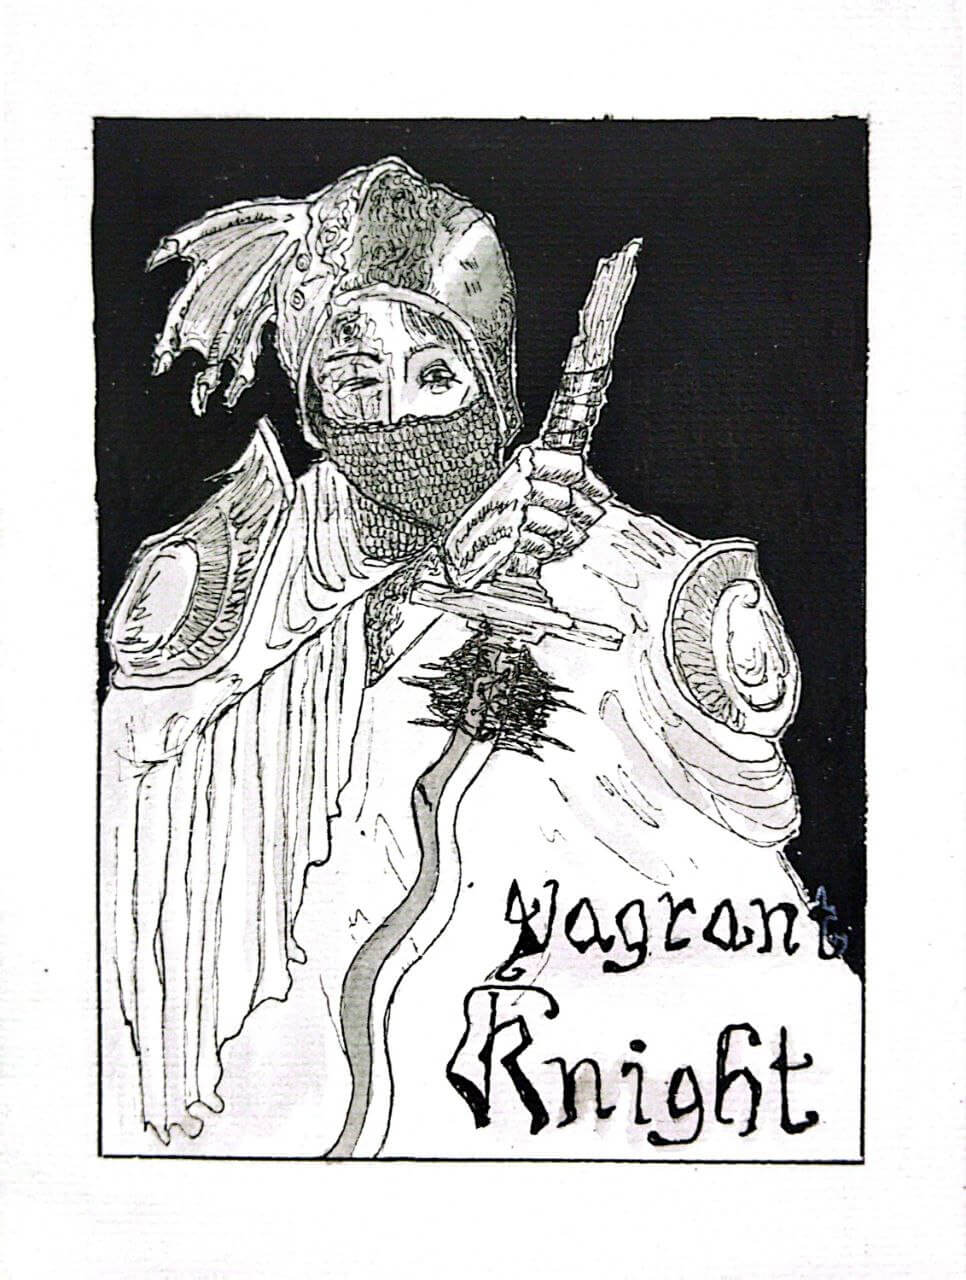 Vagrant
Knight